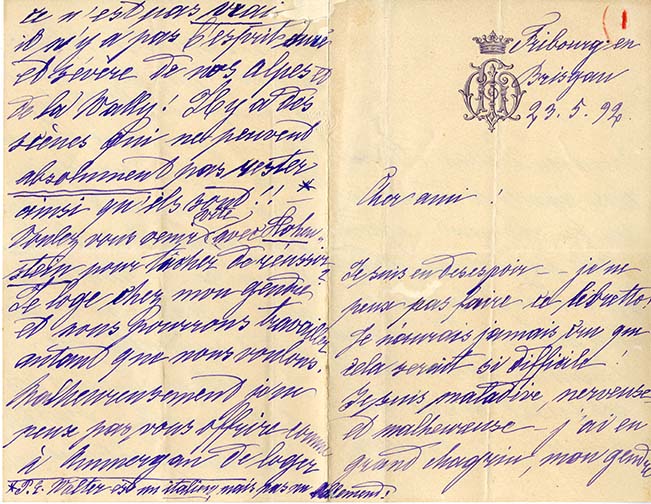 (1
Fribourg en
Brisgau
23. 5. 92.
Cher ami !
Je suis en desespoir — — je ne
peux pas faire ce libretto!
Je n'aurais jamais cru que
cela serait si difficile !
Je suis maladive, nerveuse
et malheureuse — j'ai eu
grand chagrin, mon gendre
ce n'est pas vrai
il n'y a pas l'esprit
et sévère de nos alpes et
de la Wally! Il y a des
scènes qui ne peuvent
absolument pas rester
ainsi qu'ils sont!! *
Voulez vous venir avec Hohn-
stein pour tâcher de réussir?
Je loge chez mon gendre
et nous pourrons travailler
autant que nous voulons.
Malheureusement je ne
peux pas vous offrire comme
à Ammergau de loger
* P. E. Walter est un italien, mais pas un allemand!